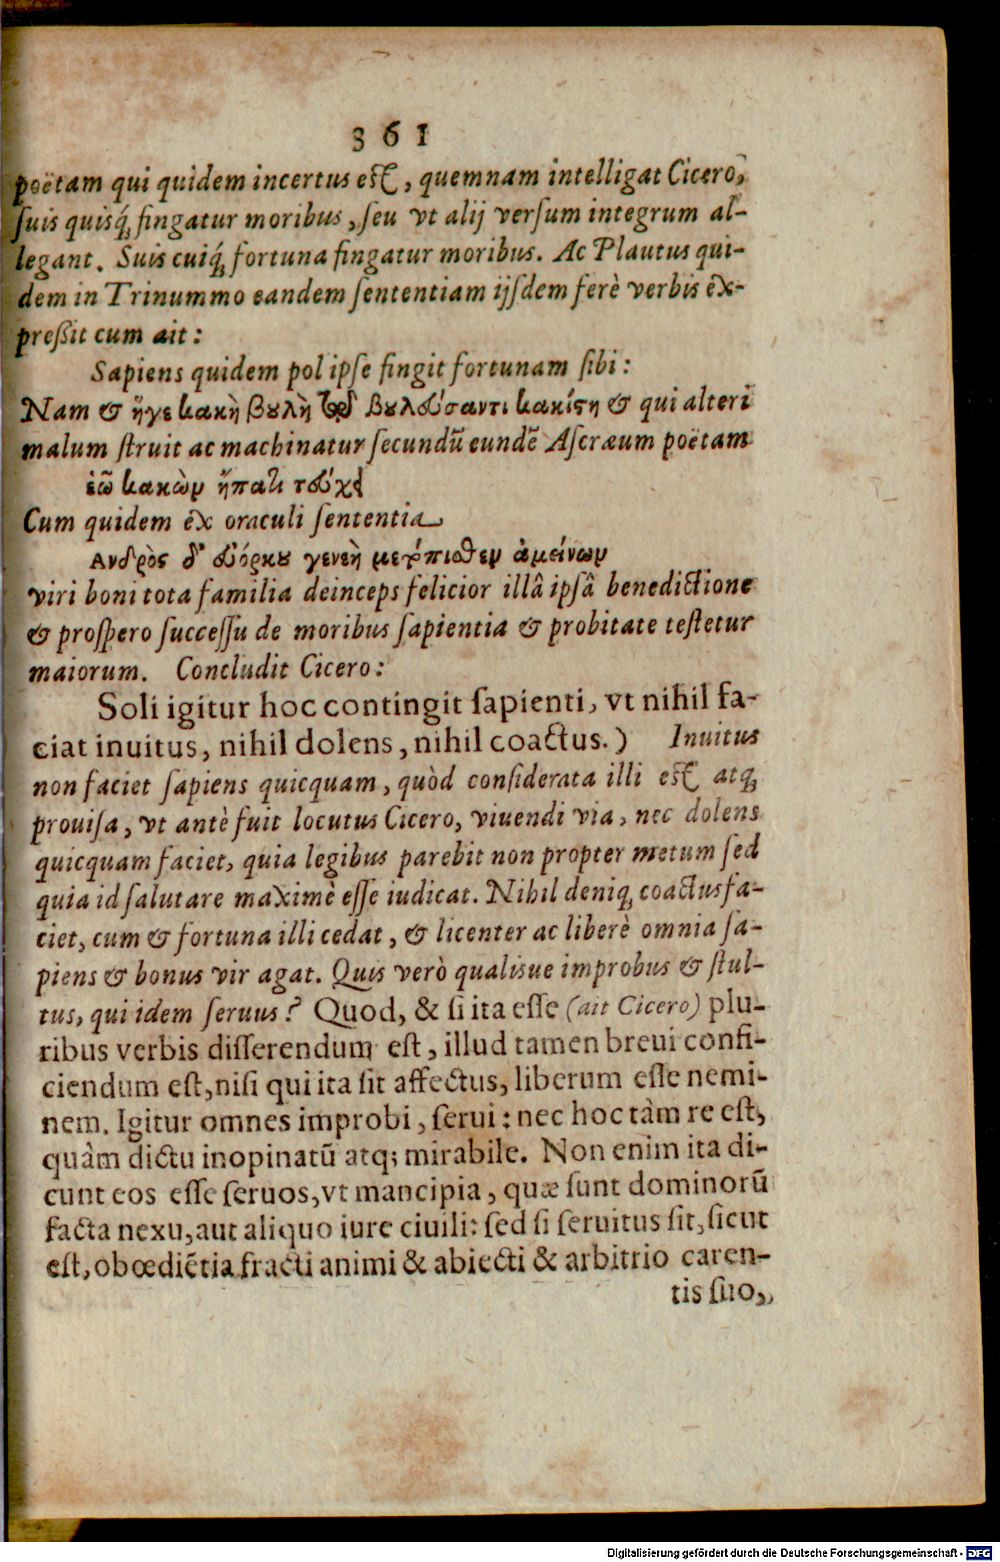 361
poëtam qui quidem incertus est, quemnam intelligat Cicero,
suis quisq́; fingatur moribus, seu vt alij versum integrum al-
legant. Suis cuiq́; fortuna fingatur moribus. Ac Plautus qui-
dem in Trinummo eandem sententiam ijsdem ferè verbis ex-
preßit cum ait:
Sapiens quidem pol ipse fingit fortunam sibi:
Nam & ἥγε κακὴ βουλὴ τῷ βουλεύσαντι κακίστη & qui alteri
malum struit ac machinatur secundū eundē Ascræum poëtam
ἑῷ κακὸν ἥπατι τεύχει
Cum quidem ex oraculi sententia
Ανδρὸς δ' εὐόρκου γενεὴ μετόπισθεν ἀμείνων
viri boni tota familia deinceps felicior illâ ipsâ benedictione
& prospero successu de moribus sapientia & probitate testetur
maiorum. Concludit Cicero:
Soli igitur hoc contingit sapienti, vt nihil fa-
ciat inuitus, nihil dolens, nihil coactus.) Inuitus
non faciet sapiens quicquam, quòd considerata illi est atq;
prouisa, vt antè fuit locutus Cicero, viuendi via, nec dolens
quicquam faciet, quia legibus parebit non propter metum sed
quia id salutare maximè esse iudicat. Nihil deniq; coactus fa-
ciet, cum & fortuna illi cedat, & licenter ac liberè omnia sa-
piens & bonus vir agat. Quis verò qualisue improbus & stul-
tus, qui idem seruus? Quod, & si ita esse (ait Cicero) plu-
ribus verbis disserendum est, illud tamen breui confi-
ciendum est, nisi qui ita sit affectus, liberum esse nemi-
nem. Igitur omnes improbi, serui: nec hoc tàm re est,
quàm dictu inopinatū atq; mirabile. Non enim ita di-
cunt eos esse seruos, vt mancipia, quæ sunt dominorū
facta nexu, aut aliquo iure ciuili: sed si seruitus sit, sicut
est, obœdiētia fracti animi & abiecti & arbitrio caren-
tis suo,
Digitalisierung gefördert durch die Deutsche Forschungsgemeinschaft - DFG